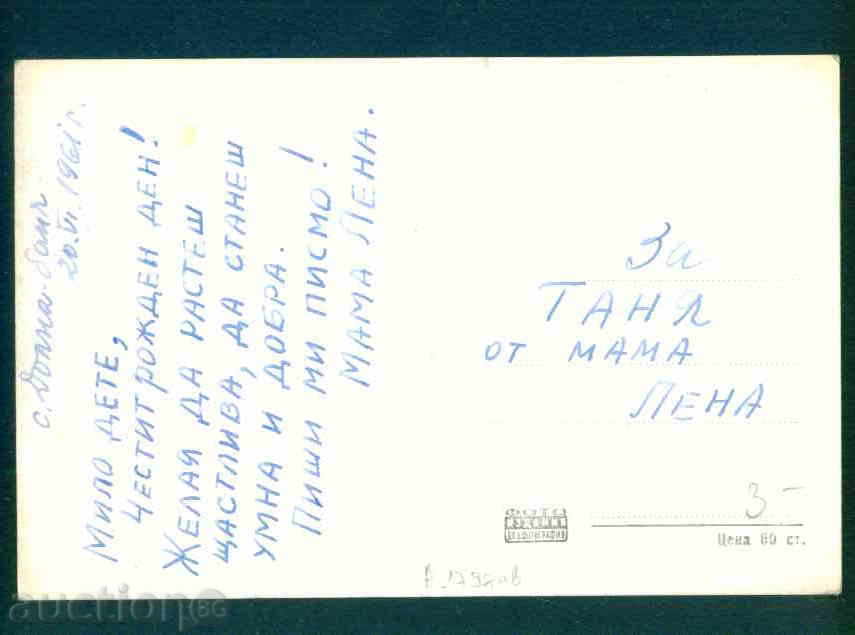 с. Долна-баня.
20.VI.1961 г.
МИЛО ДЕТЕ,
ЧЕСТИТ РОЖДЕН ДЕН!
ЖЕЛАЯ ДА РАСТЕШ
ЩАСТЛИВА, ДА СТАНЕШ
УМНА И ДОБРА.
ПИШИ МИ ПИСМО!
МАМА ЛЕНА.
За
ТАНЯ
ОТ МАМА
ЛЕНА
3-
ФОТО
ИЗДАНИЕ
Цена 60 ст.
auctionBG